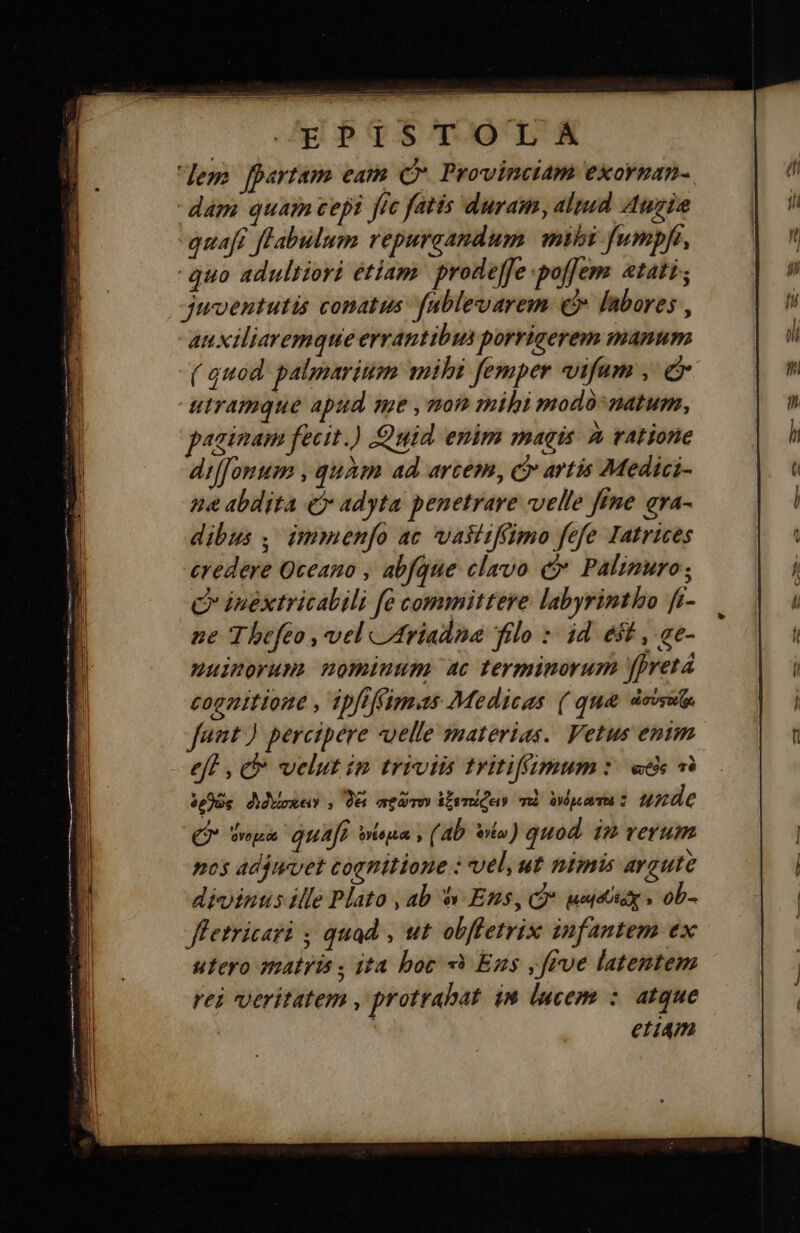 EPISTOLA
lem ſpartam eam & Provinciam exornan-
dam quam cepi ſic fatis duram, aliud Augiæ
quaſi ſtabulum repurgandum mihi ſumpſi,
quo adultiori etiam prodeſſe poſſem ætati;
juventutis conatus ſublevarem & labores,
auxiliaremque errantibus porrigerem manum
(quod palmarium mihi ſemper viſum, &
utramque apud me, non mihi modò natum,
paginam fecit.) Quid enim magis à ratione
diſſonum, quàm ad arcem, & artis Medici-
næ abdita & adyta penetrare velle ſine gra-
dibus; immenſo ac vaſtiſſimo ſeſe Iatrices
credere Oceano, abſque clavo & Palinuro;
& inextricabili ſe committere labyrintho ſi-
ne Theſeo, vel Ariadnæ filo: id eſt, ge-
nuinorum nominum ac terminorum ſpretâ
cognitione, ipſiſſimas Medicas (quæ
ſunt) percipere velle materias. Vetus enim
eſt, & velut in triviis tritiſſimum: πρὸς τὸ
ὀρθῶς διδάσκειν, δεῖ πρῶτον ἐξετάζειν τὰ ὀνόματα: unde
& ὄνομα quaſi ὀνίομα, (ab ὀνίω) quod in rerum
nos adjuvet cognitione: vel, ut nimis argutè
divinus ille Plato, ab ὂν Ens, & μαιεύειν, ob-
ſtetricari; quod, ut obſtetrix infantem ex
utero matris; ita hoc τὸ Ens, ſive latentem
rei veritatem, protrahat in lucem: atque
etiam